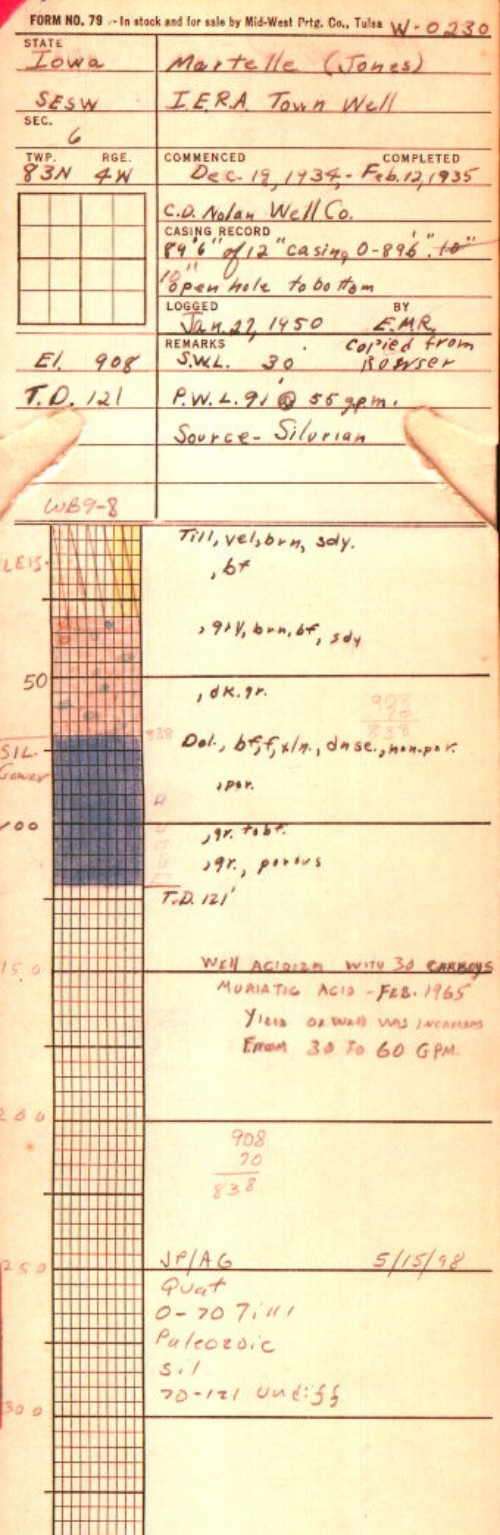 FORM NO. 79 - In stock and for sale by Mid-West Prtg. Co., Tulsa W-0230
STATE
Iowa Martelle (Jones)
SESW I.E.R.A. Town Well
SEC.
6
TWP. RGE. COMMENCED COMPLETED
83N 4W Dec. 19, 1934 - Feb. 12, 1935
C.D. Nolan Well Co.
CASING RECORD
89'6" of 12" casing 0-896".
10"
open hole to bottom
LOGGED BY
Jan. 27, 1950 E.M.R.
REMARKS Copied from
El. 908 S.W.L. 30'
T.D. 121 P.W.L. 91' @ 55 gpm.
Source - Silurian
WB9-8
Till, yel, brn, sdy.
PLEIS.
, bf
, gry, brn, bf, sdy
50
, dk. gr.
908
70
838
838
SIL. Dol., bf, f, xln., dnse., non-por.
Gower
, por.
100
, gr. to bf.
, gr., porous
T.D. 121'
150 WELL ACIDIZED WITH 30 CARBOYS
MURIATIC ACID - FEB. 1965
YIELD OF WELL WAS INCREASED
FROM 30 TO 60 GPM.
200
908
70
838
250 JP/AG 5/15/98
Quat
0-70 Till
Paleozoic
Sil
70-121 Undiff
300